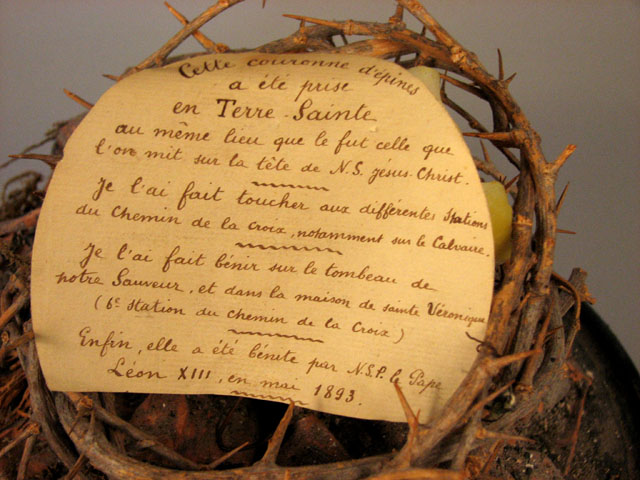 Cette couronne d'épines
a été prise
en Terre-Sainte
au même lieu que le fut celle que
l'on mit sur la tête de N.S. Jésus-Christ.
Je l'ai fait toucher aux différentes stations
du Chemin de la croix, notamment sur le Calvaire.
Je l'ai fait bénir sur le tombeau de
notre Sauveur, et dans la maison de sainte Véronique
(6e station du Chemin de la Croix)
Enfin, elle a été bénite par N.S.P. le Pape
Léon XIII, en mai 1893.